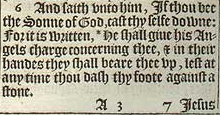 6 And saith vnto him, If thou bee
the Sonne of God, cast thy selfe downe:
For it is written, *He shall giue his An-
gels charge concerning thee, & in their
handes they shall beare thee vp, lest at
any time thou dash thy foote against a
stone.
A 3 7 Jesus